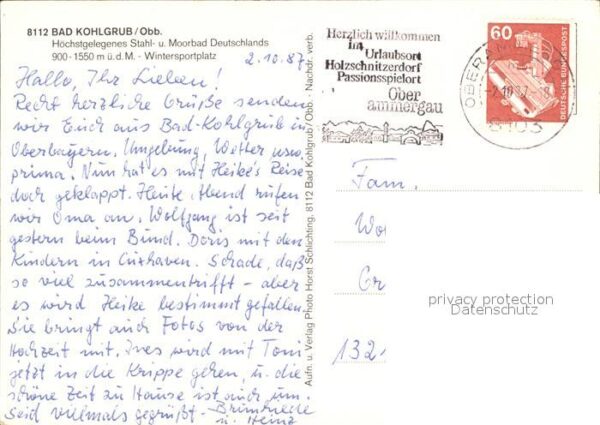 8112 BAD KOHLGRUB/Obb.
Höchstgelegenes Stahl- u. Moorbad Deutschlands
900-1550 m ü.d.M. - Wintersportplatz
2.10.87
Hallo, Ihr Lieben!
Recht herzliche Grüße senden
wir Euch aus Bad-Kohlgrub in
Oberbayern. Umgebung, Wetter usw.
prima. Nun hat es mit Heike's Reise
doch geklappt. Heute Abend rufen
wir Oma an. Wolfgang ist seit
gestern beim Bund. Doris mit den
Kindern in Cuxhaven. Schade, daß
so viel zusammentrifft - aber
es wird Heike bestimmt gefallen.
Sie bringt auch Fotos von der
Hochzeit mit. Ines wird mit Toni
jetzt in die Krippe gehen, u. die
schöne Zeit zu Hause ist auch um.
Seid vielmals gegrüßt -
u. Heinz
Aufn. u. Verlag Photo Horst Schlichting, 8112 Bad Kohlgrub/Obb. · Nachdr. verb.
Herzlich willkommen
im
Urlaubsort
Holzschnitzerdorf
Passionsspielort
Ober
ammergau
60
DEUTSCHE BUNDESPOST
8103
Fam.
Wo
Gr
132
privacy protection
Datenschutz